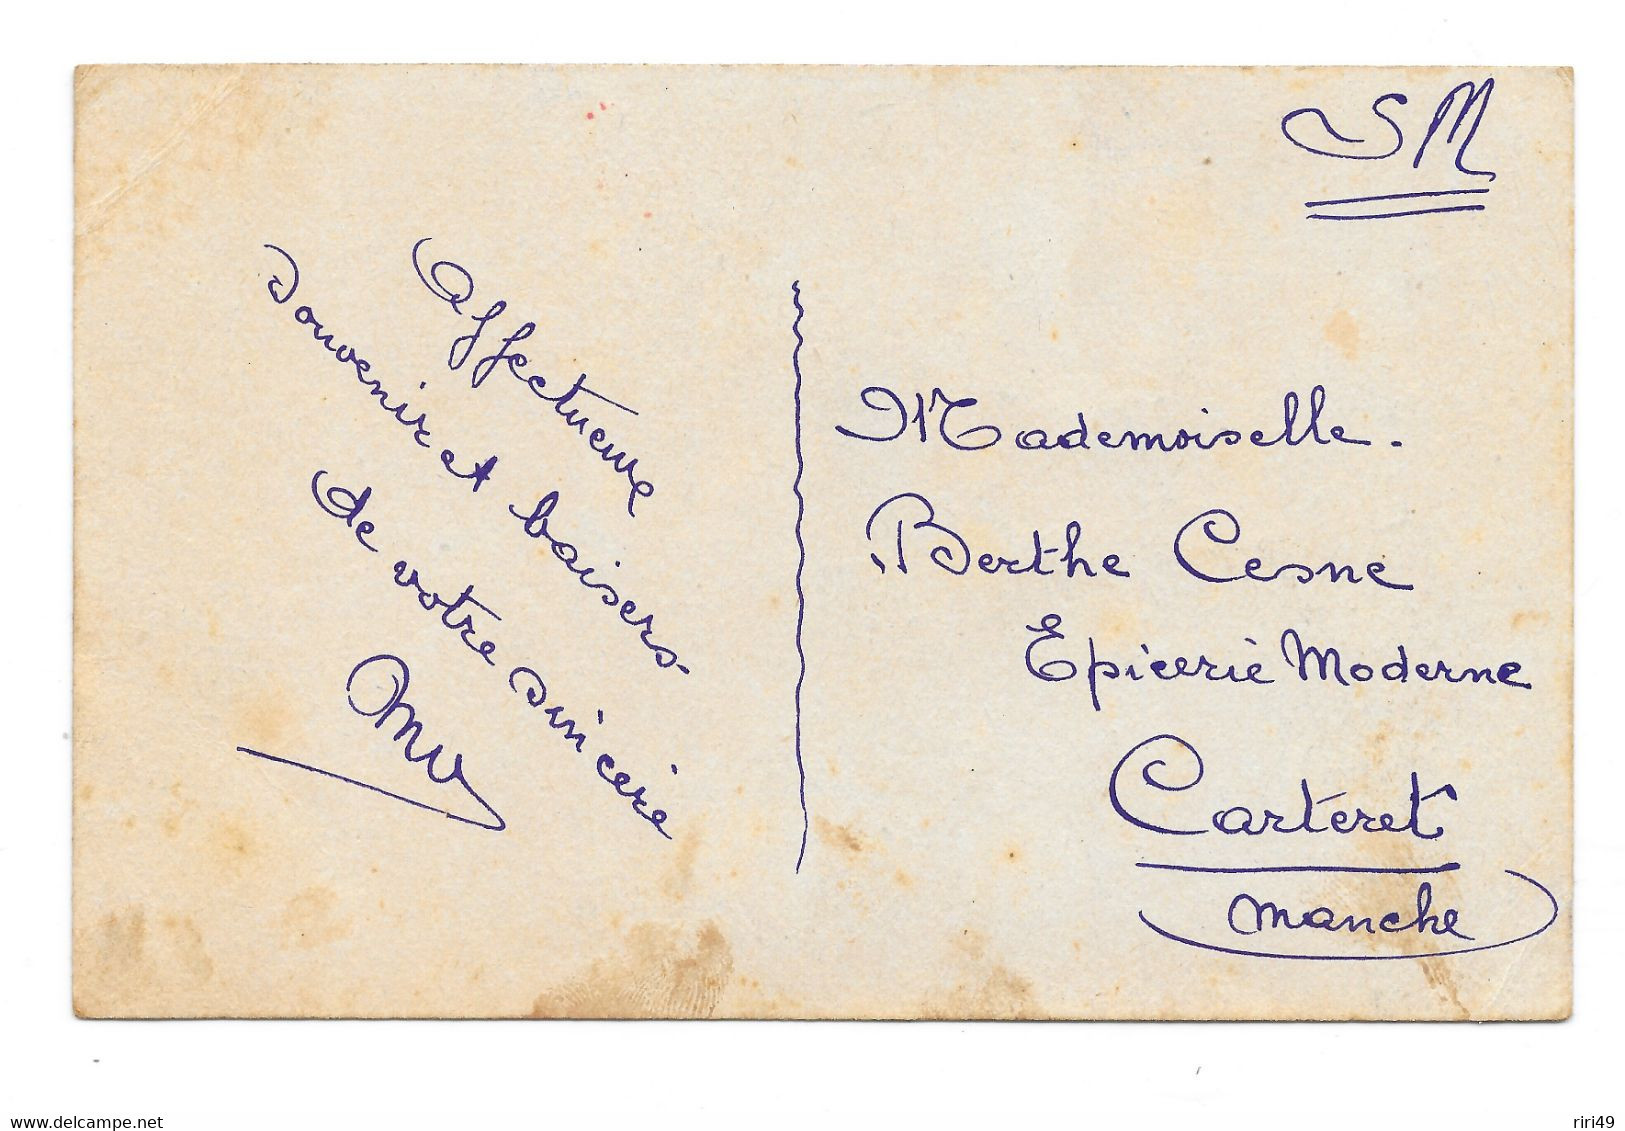 Affectueux
Souvenir et baisers
de votre sincère
SM
Mademoiselle.
Berthe Cesne
Epicerie Moderne
Carteret
(Manche)
www.delcampe.net
riri49